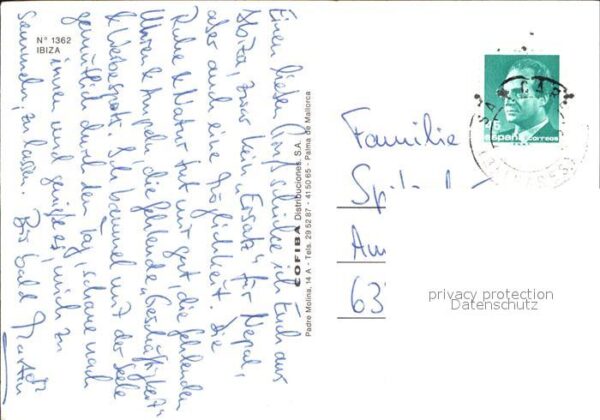 N° 1362
IBIZA
Einen lieben Gruß schicke ich Euch aus
Ibiza, zwar kein „Ersatz“ für Nepal,
aber auch eine Möglichkeit. Die
Ruhe & Natur tut mir gut, die fehlenden
Uhren & Ampeln, die fehlende „Geschäftigkeit“
& Werbespots. Ich baumel mit der Seele
gemütlich durch den Tag, schaue nach
innen und genieße es, mich zu
sammeln, zu lassen.
Bis bald
Martin
COFIBA Distribuciones, S.A.
Padre Molina, 14 A - Tels. 29 52 87 - 41 50 65 - Palma de Mallorca
45
España
CORREOS
Familie
Am
63
privacy protection
Datenschutz